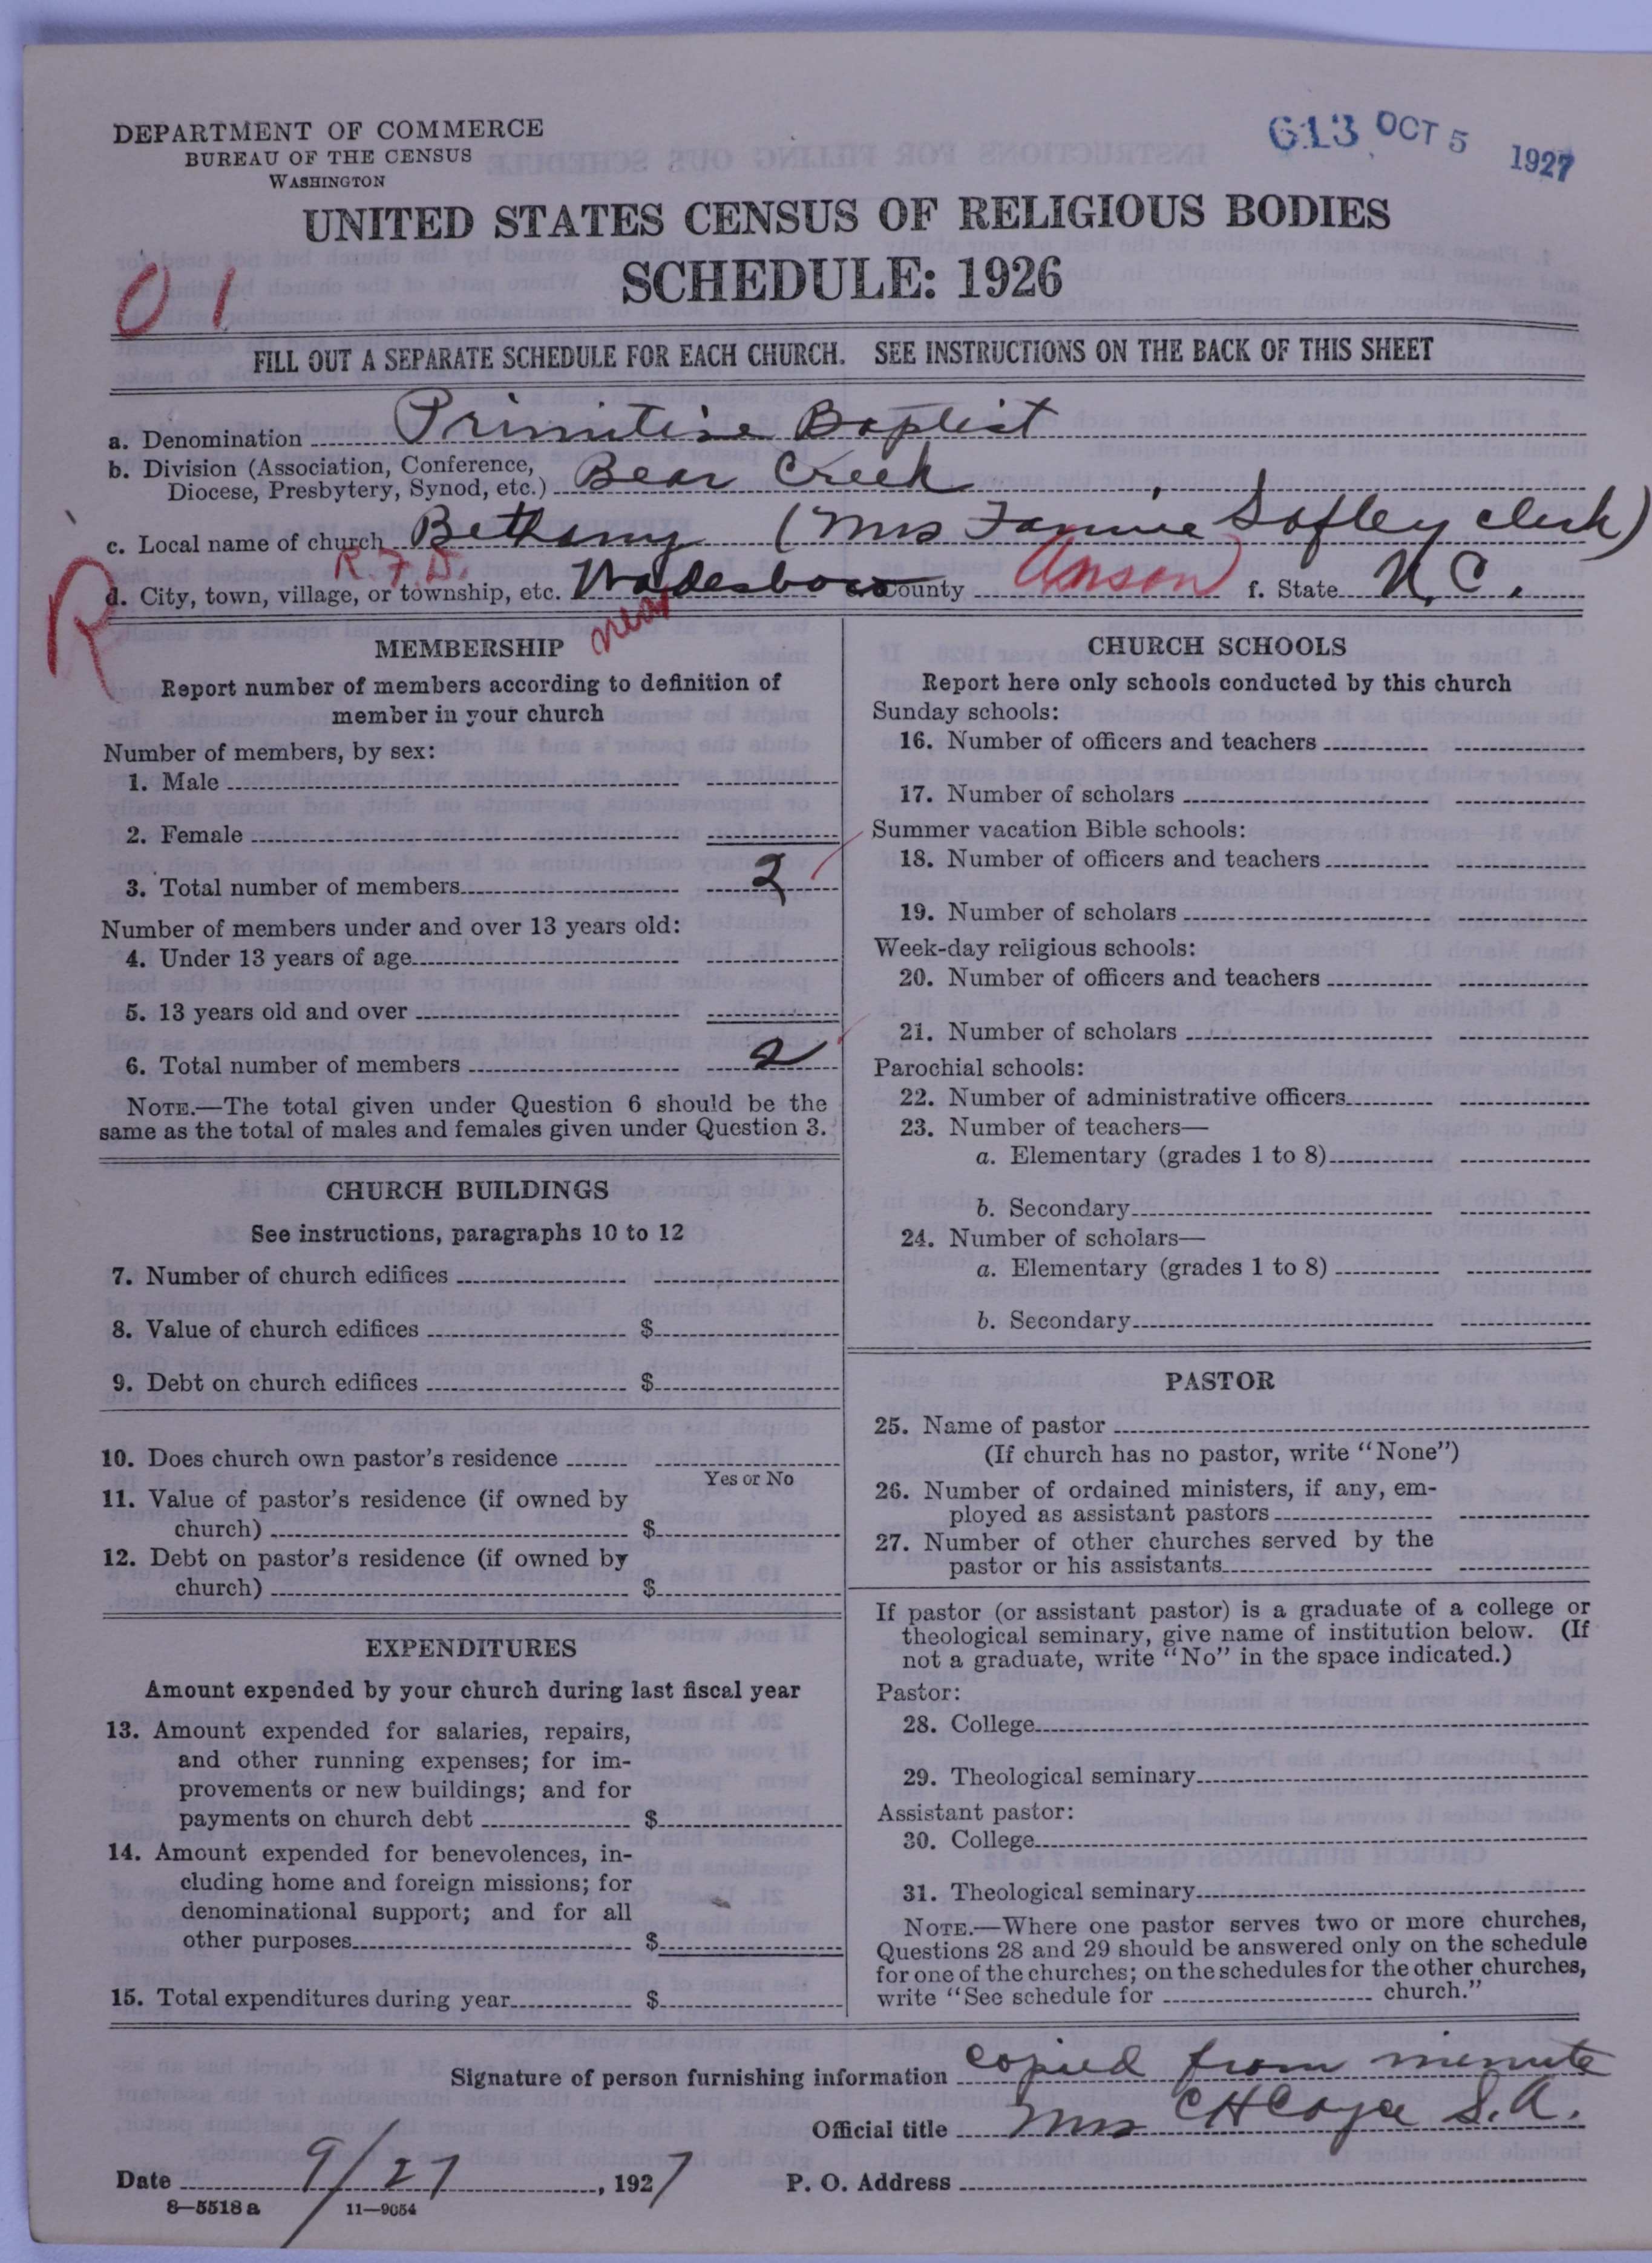 DEPARTMENT OF COMMERCE
BUREAU OF THE CENSUS
WASHINGTON
613 OCT 5 1927
UNITED STATES CENSUS OF RELIGIOUS BODIES
SCHEDULE: 1926
01
FILL OUT A SEPARATE SCHEDULE FOR EACH CHURCH. SEE INSTRUCTIONS ON THE BACK OF THIS SHEET
a. Denomination Primitive Baptist
b. Division (Association, Conference,
Diocese, Presbytery, Synod, etc.) Bear Creek
c. Local name of church Bethany (Mrs Fannie Sofley clerk)
R.F.D.
R
d. City, town, village, or township, etc. Wadesboro e. County Anson f. State N.C.
near
MEMBERSHIP
Report number of members according to definition of
member in your church
Number of members, by sex:
1. Male
2. Female
3. Total number of members 2
Number of members under and over 13 years old:
4. Under 13 years of age
5. 13 years old and over
6. Total number of members 2
NOTE.—The total given under Question 6 should be the
same as the total of males and females given under Question 3.
CHURCH BUILDINGS
See instructions, paragraphs 10 to 12
7. Number of church edifices
8. Value of church edifices $
9. Debt on church edifices $
10. Does church own pastor's residence
Yes or No
11. Value of pastor's residence (if owned by
church) $
12. Debt on pastor's residence (if owned by
church) $
EXPENDITURES
Amount expended by your church during last fiscal year
13. Amount expended for salaries, repairs,
and other running expenses; for im-
provements or new buildings; and for
payments on church debt $
14. Amount expended for benevolences, in-
cluding home and foreign missions; for
denominational support; and for all
other purposes $
15. Total expenditures during year $
CHURCH SCHOOLS
Report here only schools conducted by this church
Sunday schools:
16. Number of officers and teachers
17. Number of scholars
Summer vacation Bible schools:
18. Number of officers and teachers
19. Number of scholars
Week-day religious schools:
20. Number of officers and teachers
21. Number of scholars
Parochial schools:
22. Number of administrative officers
23. Number of teachers—
a. Elementary (grades 1 to 8)
b. Secondary
24. Number of scholars—
a. Elementary (grades 1 to 8)
b. Secondary
PASTOR
25. Name of pastor
(If church has no pastor, write "None")
26. Number of ordained ministers, if any, em-
ployed as assistant pastors
27. Number of other churches served by the
pastor or his assistants
If pastor (or assistant pastor) is a graduate of a college or
theological seminary, give name of institution below. (If
not a graduate, write "No" in the space indicated.)
Pastor:
28. College
29. Theological seminary
Assistant pastor:
30. College
31. Theological seminary
NOTE.—Where one pastor serves two or more churches,
Questions 28 and 29 should be answered only on the schedule
for one of the churches; on the schedules for the other churches,
write "See schedule for church."
Signature of person furnishing information copied from minute
Official title Mrs C H S.A.
Date 9/27, 1927 P. O. Address
8—5518 a 11—9054